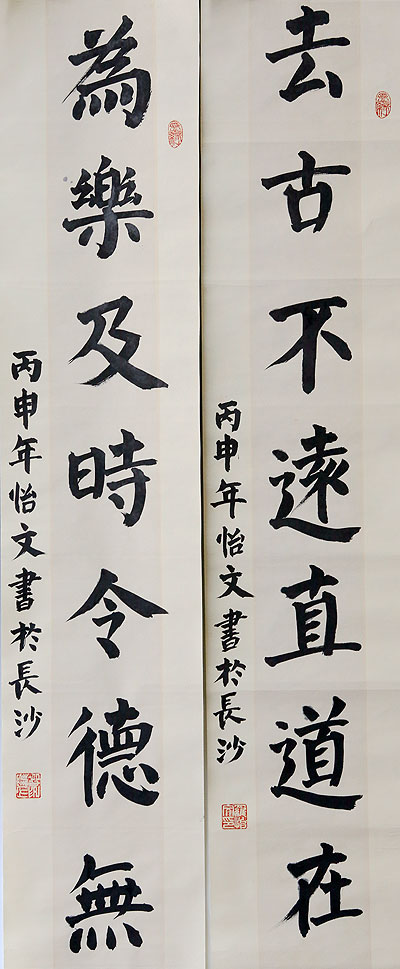 去古不遠直道在
丙申年怡文書於長沙
為樂及時令德無
丙申年怡文書於長沙